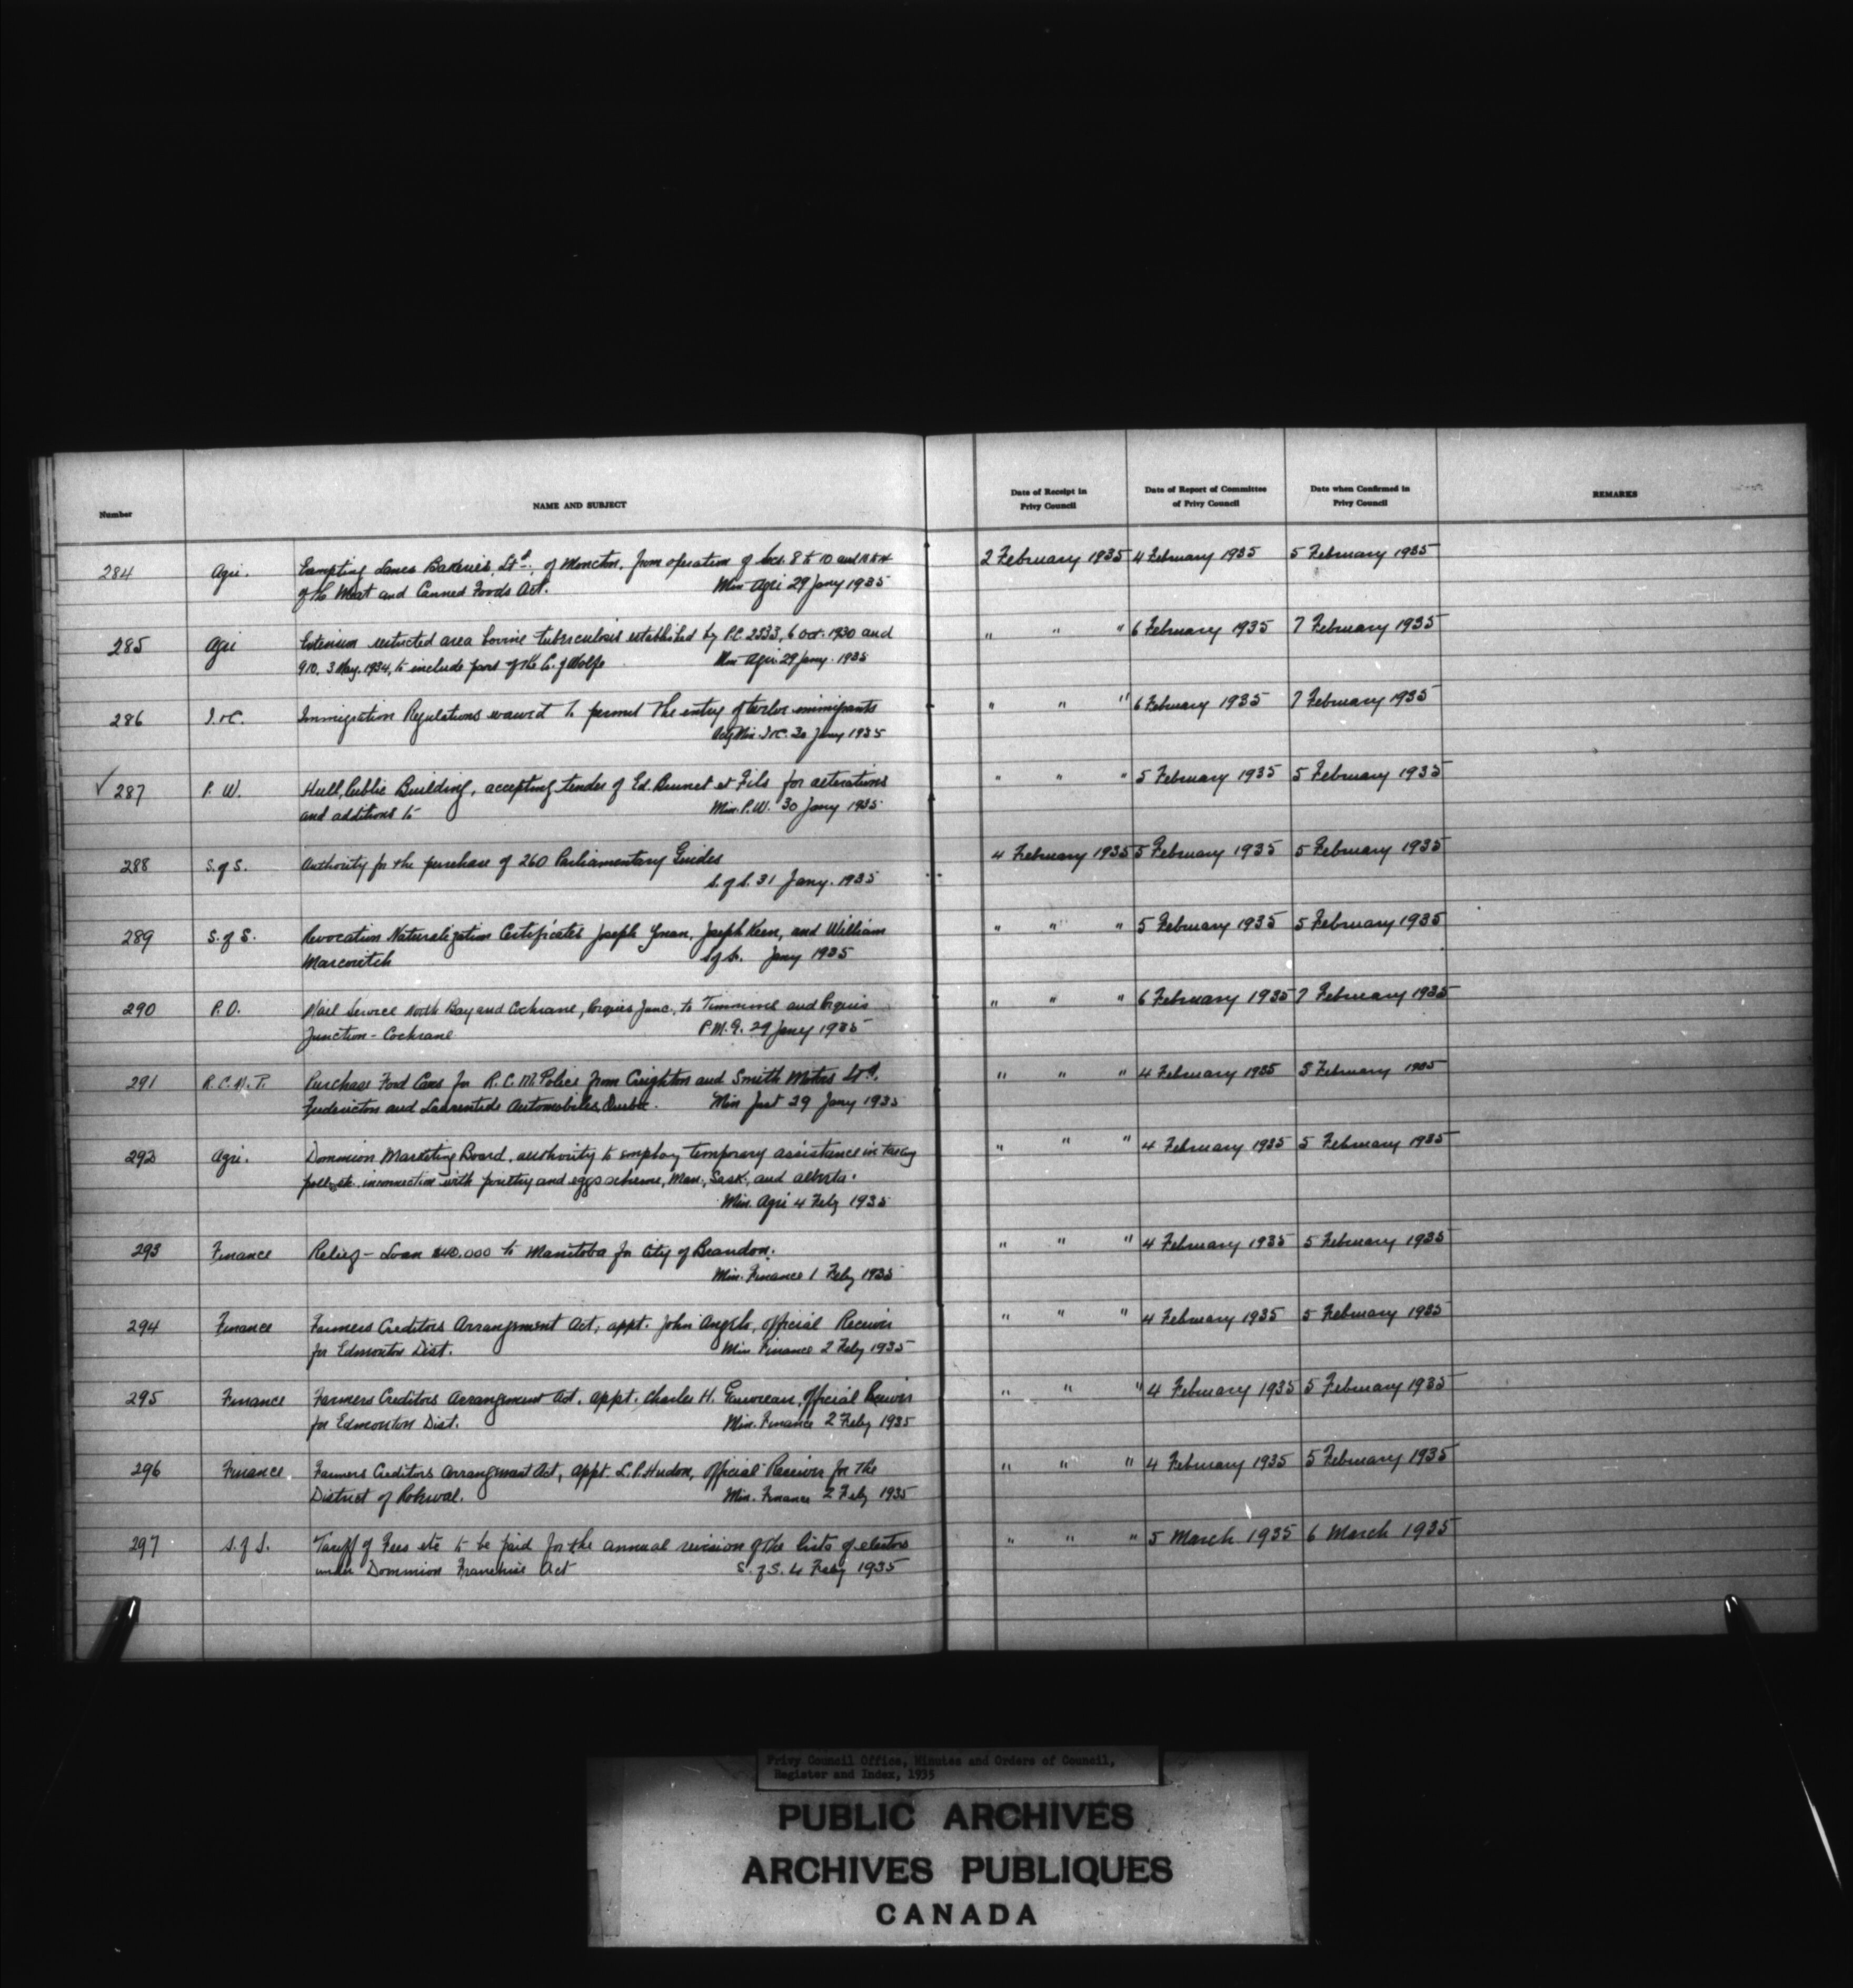 Number NAME AND SUBJECT Date of Receipt in Privy Council Date of Report of Committee of Privy Council Date when Confirmed in Privy Council REMARKS
284 Agri. Exempting Lanes Bakeries, Ltd., of Moncton, from operation of Sect. 8 to 10 and 2 February 1935 4 February 1935 5 February 1935
of the Meat and Canned Foods Act. Min Agri 29 Jany 1935
285 Agri Extension restricted area bovine tuberculosis established by P.C. 2333, 6 Oct. 1930 and " " " 6 February 1935 7 February 1935
910, 3 May, 1934, to include part of the Co. of Wolfe Min Agri 29 Jany. 1935
286 I. & C. Immigration Regulations waived to permit the entry of twelve immigrants " " " 6 February 1935 7 February 1935
Actg Min. I & C. 30 Jany 1935
✓ 287 P. W. Hull, Public Building, accepting tender of Ed. Brunet et Fils for alterations " " " 5 February 1935 5 February 1935
and additions to Min. P.W. 30 Jany 1935
288 S. of S. Authority for the purchase of 260 Parliamentary Guides 4 February 1935 5 February 1935 5 February 1935
S. of S. 31 Jany. 1935
289 S. of S. Revocation Naturalization Certificates Joseph Joseph Keen, and William " " " 5 February 1935 5 February 1935
Marcovitch S of S. Jany 1935
290 P. O. Mail Service North Bay and Cochrane, Porquis Junc., to Timmins and Porquis " " " 6 February 1935 7 February 1935
Junction - Cochrane P.M.G. 29 Jany 1935
291 R. C. M. P. Purchase Ford Cars for R. C. M. Police from Creighton and Smith Motors Ltd. " " " 4 February 1935 3 February 1935
Fredericton and Laurentide Automobiles, Quebec. Min Just 29 Jany 1935
292 Agri. Dominion Marketing Board, authority to employ temporary assistance in taking " " " 4 February 1935 5 February 1935
poll, etc. in connection with poultry and eggs scheme, Man., Sask. and Alberta.
Min. Agri 4 Feby 1935
293 Finance Relief - Loan $40.000 to Manitoba for City of Brandon. " " " 4 February 1935 5 February 1935
Min. Finance 1 Feby 1935
294 Finance Farmers Creditors Arrangement Act, appt. John Angelo, Official Receiver " " " 4 February 1935 5 February 1935
for Edmonton Dist. Min Finance 2 Feby 1935
295 Finance Farmers Creditors Arrangement Act, appt. Charles H. Official Receiver " " " 4 February 1935 5 February 1935
for Edmonton Dist. Min. Finance 2 Feby 1935
296 Finance Farmers Creditors Arrangement Act, appt. L.P. Hudon, Official Receiver for the " " " 4 February 1935 5 February 1935
District of Roberval. Min. Finance 2 Feby 1935
297 S. of S. Tariff of Fees etc to be paid for the annual revision of the lists of electors " " " 5 March 1935 6 March 1935
under Dominion Franchise Act S. of S. 4 Feby 1935
Privy Council Office, Minutes and Orders of Council,
Register and Index, 1935
PUBLIC ARCHIVES
ARCHIVES PUBLIQUES
CANADA